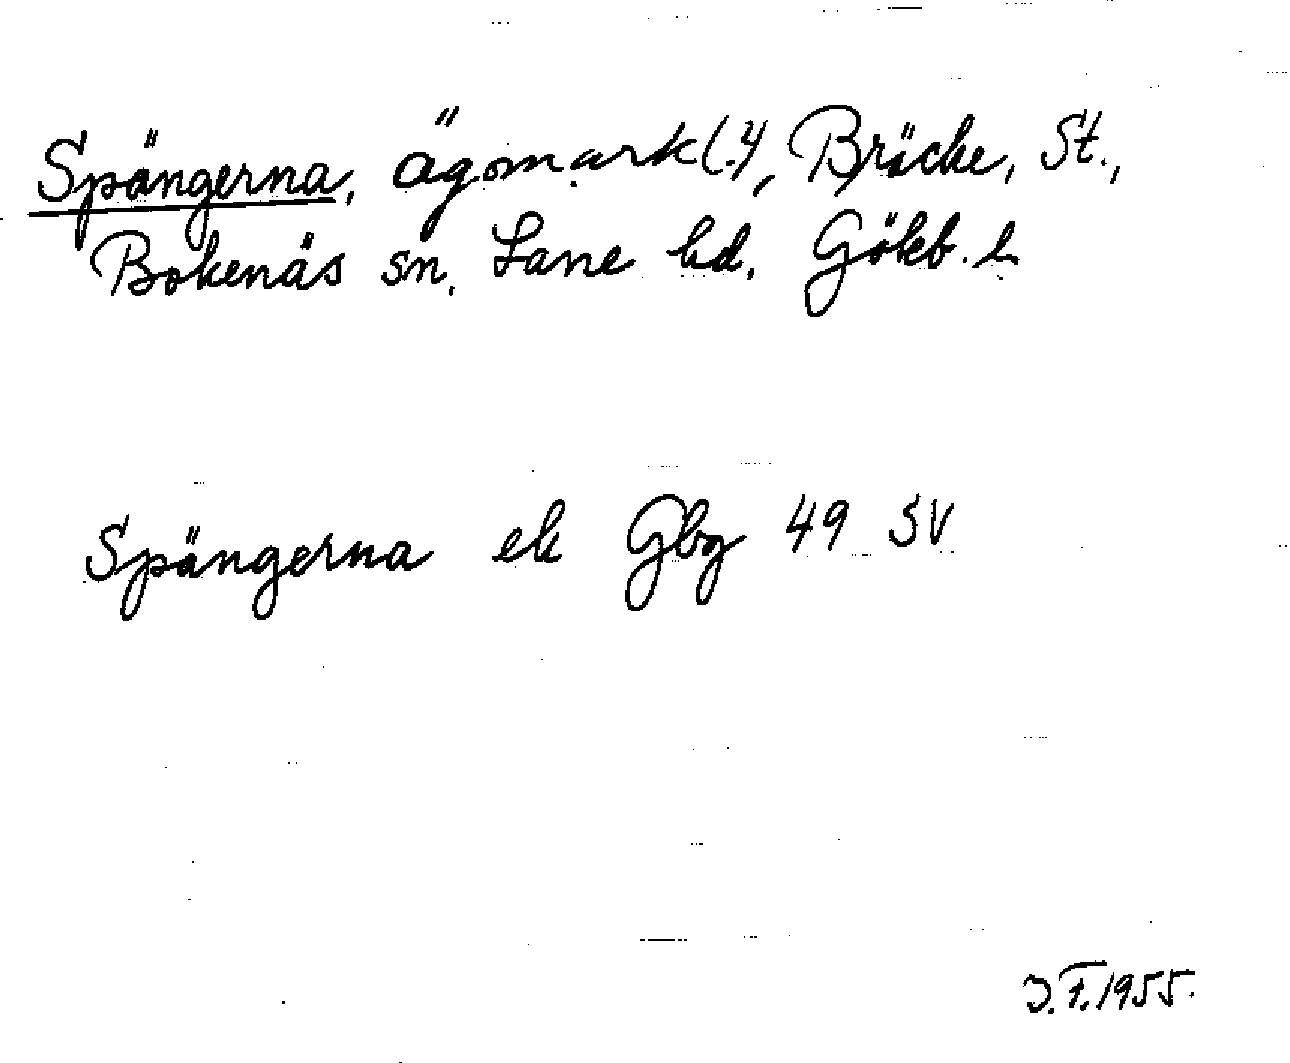 Spängerna, ägomark(.?), Bräcke, St.,
Bokenäs sn, Lane hd, Gökb. l.
Spängerna ek Gbg 49 SV
J.F.1955.